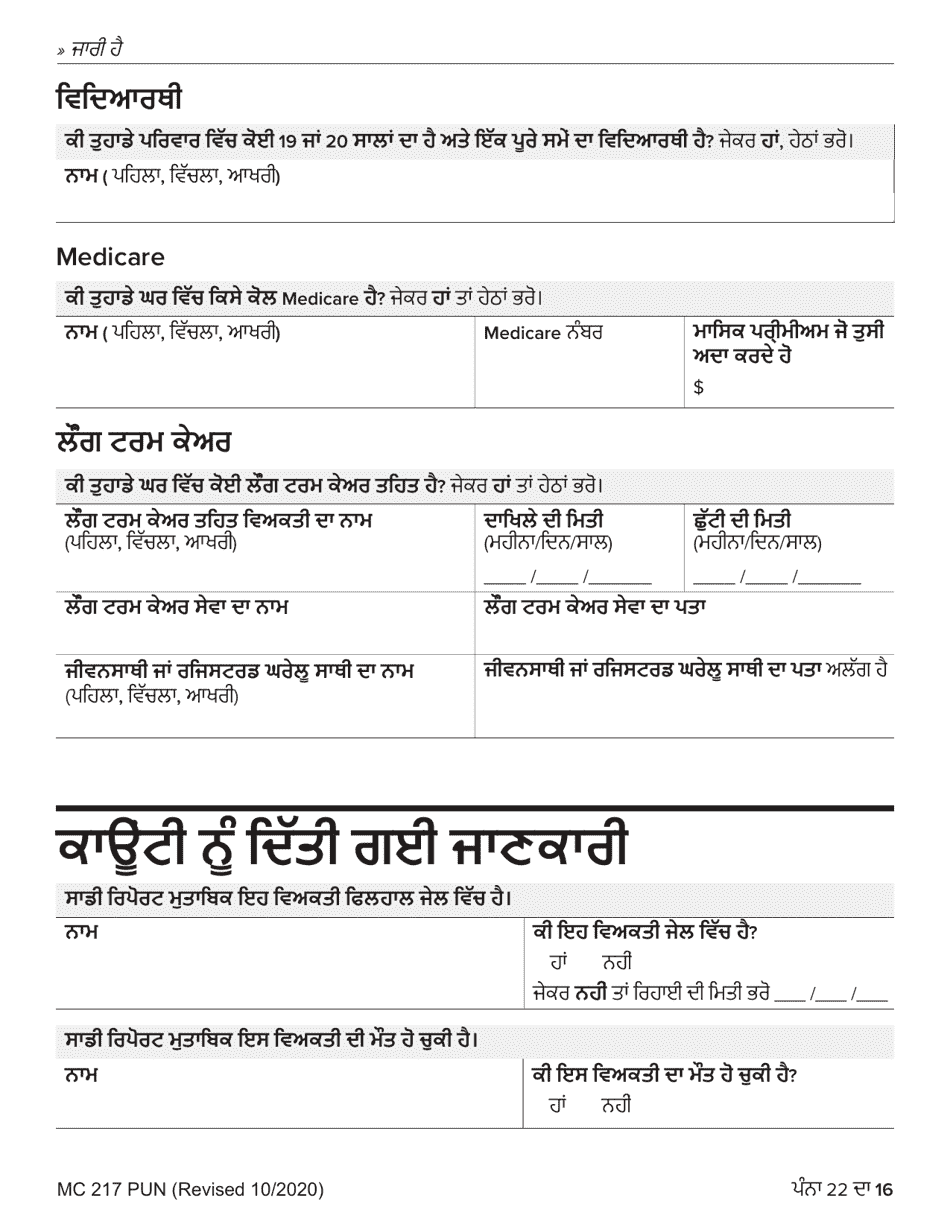 » ਜਾਰੀ ਹੈ
ਵਿਦਿਆਰਥੀ
ਕੀ ਤੁਹਾਡੇ ਪਰਿਵਾਰ ਵਿੱਚ ਕੋਈ 19 ਜਾਂ 20 ਸਾਲਾਂ ਦਾ ਹੈ ਅਤੇ ਇੱਕ ਪੂਰੇ ਸਮੇਂ ਦਾ ਵਿਦਿਆਰਥੀ ਹੈ? ਜੇਕਰ ਹਾਂ, ਹੇਠਾਂ ਭਰੋ।
ਨਾਮ ( ਪਹਿਲਾ, ਵਿੱਚਲਾ, ਆਖਰੀ)
Medicare
ਕੀ ਤੁਹਾਡੇ ਘਰ ਵਿੱਚ ਕਿਸੇ ਕੋਲ Medicare ਹੈ? ਜੇਕਰ ਹਾਂ ਤਾਂ ਹੇਠਾਂ ਭਰੋ।
ਨਾਮ ( ਪਹਿਲਾ, ਵਿੱਚਲਾ, ਆਖਰੀ)
Medicare ਨੰਬਰ
ਮਾਸਿਕ ਪਰ੍ੀਮੀਅਮ ਜੋ ਤੁਸੀ
ਅਦਾ ਕਰਦੇ ਹੋ
$
ਲੌਂਗ ਟਰਮ ਕੇਅਰ
ਕੀ ਤੁਹਾਡੇ ਘਰ ਵਿੱਚ ਕੋਈ ਲੌਂਗ ਟਰਮ ਕੇਅਰ ਤਹਿਤ ਹੈ? ਜੇਕਰ ਹਾਂ ਤਾਂ ਹੇਠਾਂ ਭਰੋ।
ਲੌਂਗ ਟਰਮ ਕੇਅਰ ਤਹਿਤ ਵਿਅਕਤੀ ਦਾ ਨਾਮ
(ਪਹਿਲਾ, ਵਿੱਚਲਾ, ਆਖਰੀ)
ਦਾਖਿਲੇ ਦੀ ਮਿਤੀ
(ਮਹੀਨਾ/ਦਿਨ/ਸਾਲ)
____ /____ /______
ਛੁੱਟੀ ਦੀ ਮਿਤੀ
(ਮਹੀਨਾ/ਦਿਨ/ਸਾਲ)
____ /____ /______
ਲੌਂਗ ਟਰਮ ਕੇਅਰ ਸੇਵਾ ਦਾ ਨਾਮ
ਲੌਂਗ ਟਰਮ ਕੇਅਰ ਸੇਵਾ ਦਾ ਪਤਾ
ਜੀਵਨਸਾਥੀ ਜਾਂ ਰਜਿਸਟਰਡ ਘਰੇਲੂ ਸਾਥੀ ਦਾ ਨਾਮ
(ਪਹਿਲਾ, ਵਿੱਚਲਾ, ਆਖਰੀ)
ਜੀਵਨਸਾਥੀ ਜਾਂ ਰਜਿਸਟਰਡ ਘਰੇਲੂ ਸਾਥੀ ਦਾ ਪਤਾ ਅਲੱਗ ਹੈ
ਕਾਊਂਟੀ ਨੂੰ ਦਿੱਤੀ ਗਈ ਜਾਣਕਾਰੀ
ਸਾਡੀ ਰਿਪੋਰਟ ਮੁਤਾਬਿਕ ਇਹ ਵਿਅਕਤੀ ਫਿਲਹਾਲ ਜੇਲ ਵਿੱਚ ਹੈ।
ਨਾਮ
ਕੀ ਇਹ ਵਿਅਕਤੀ ਜੇਲ ਵਿੱਚ ਹੈ?
ਹਾਂ ਨਹੀਂ
ਜੇਕਰ ਨਹੀ ਤਾਂ ਰਿਹਾਈ ਦੀ ਮਿਤੀ ਭਰੋ ___ /___ /___
ਸਾਡੀ ਰਿਪੋਰਟ ਮੁਤਾਬਿਕ ਇਸ ਵਿਅਕਤੀ ਦੀ ਮੌਤ ਹੋ ਚੁਕੀ ਹੈ।
ਨਾਮ
ਕੀ ਇਸ ਵਿਅਕਤੀ ਦਾ ਮੌਤ ਹੋ ਚੁਕੀ ਹੈ?
ਹਾਂ ਨਹੀ
MC 217 PUN (Revised 10/2020)
ਪੰਨਾ 22 ਦਾ 16